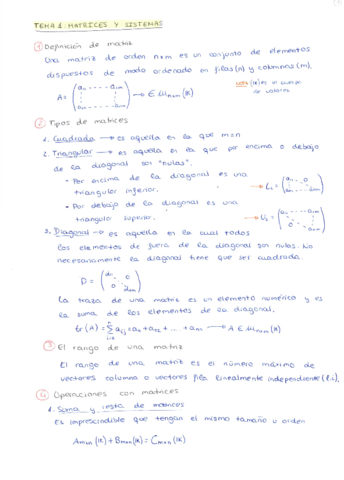 TEMA 1. MATRICES Y SISTEMAS
1 Definición de matriz
Una matriz de orden n×m es un conjunto de elementos
dispuestos de modo ordenado en filas (n) y columnas (m).
A = (a11 ..... a1m ... an1 ..... anm) → ∈ Mn×m (K)
(K) es el cuerpo
de valores
2 Tipos de matrices
1. Cuadrada → es aquella en la que m=n
2. Triangular → es aquella en la que por encima o debajo
de la diagonal son "nulas".
- Por encima de la diagonal es una
triangular inferior.
- Por debajo de la diagonal es una
triangular superior.
3. Diagonal → es aquella en la cual todos
los elementos de fuera de la diagonal son nulos. No
necesariamente la diagonal tiene que ser cuadrada.
D = (d11 0 0 dnn)
La traza de una matriz es un elemento numérico y es
la suma de los elementos de la diagonal.
tr (A) = Σ aij = a11 + a22 + ... + ann → A ∈ Mn×n (K)
3 El rango de una matriz
El rango de una matriz es el número máximo de
vectores columna o vectores fila linealmente independiente (l.i).
4 Operaciones con matrices
1. Suma y resta de matrices
Es imprescindible que tengan el mismo tamaño u orden
Am×n (K) + Bm×n (K) = Cm×n (K)